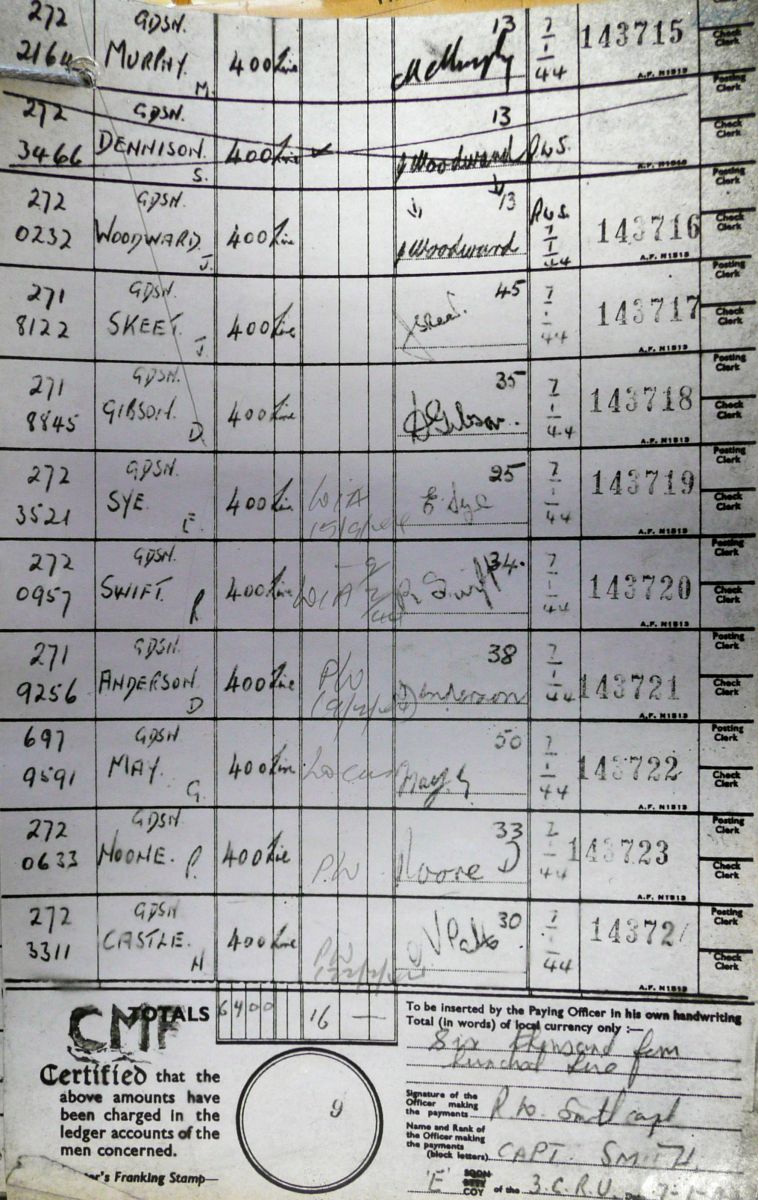 272 GDSN. 13 7 143715
MURPHY. 400 Lire McMurphy 1 Check Clerk
M. 44 A.F. N1513 Posting Clerk
272 GDSN. 13
3466 DENNISON. 400 Lire J Woodward P.W.S. Check Clerk
S. Posting Clerk
272 GDSN. 13 P.W.S. 143716
0232 WOODWARD. 400 Lire J Woodward 7 1 44 Check Clerk
J. A.F. N1513 Posting Clerk
271 GDSN. 45 7 143717
8122 SKEET. 400 Lire J Skeet. 1 Check Clerk
J. 44 A.F. N1513 Posting Clerk
271 GDSN. 35 7 143718
8845 GIBSON. 400 Lire D Gibson. 1 Check Clerk
D. 44 A.F. N1513 Posting Clerk
272 GDSN. 25 7 143719
3521 SYE 400 Lire WIA E. Sye 1 Check Clerk
E. 44 A.F. N1513 Posting Clerk
272 GDSN. 34. 7 143720
0957 SWIFT. 400 Lire WIA R. Swift 1 Check Clerk
R. 44 A.F. N1513 Posting Clerk
271 GDSN. 38 7 143721
9256 ANDERSON. 400 Lire PW D Anderson 1 Check Clerk
D 44 A.F. N1513 Posting Clerk
697 GDSN 50 7 143722
9591 MAY. 400 Lire May. G 1 Check Clerk
G. 44 A.F. N1513 Posting Clerk
272 GDSN. 33 7 143723
0633 MOONE. P. 400 Lire P.W. Moore D 1 Check Clerk
44 A.F. N1513 Posting Clerk
272 GDSN 30 7 14372
3311 CASTLE. 400 Lire PW 1 Check Clerk
H 44 A.F. N1513
CMF TOTALS 6400 16 —
To be inserted by the Paying Officer in his own handwriting
Total (in words) of local currency only :—
Six thousand four
hundred lire
Certified that the
above amounts have
been charged in the
ledger accounts of the
men concerned.
9
Signature of the
Officer making
the payments R. W. Smith capt
Name and Rank of
the Officer making
the payments
(block letters). CAPT. SMITH.
's Franking Stamp—
'E' COY of the 3.C.R.U.